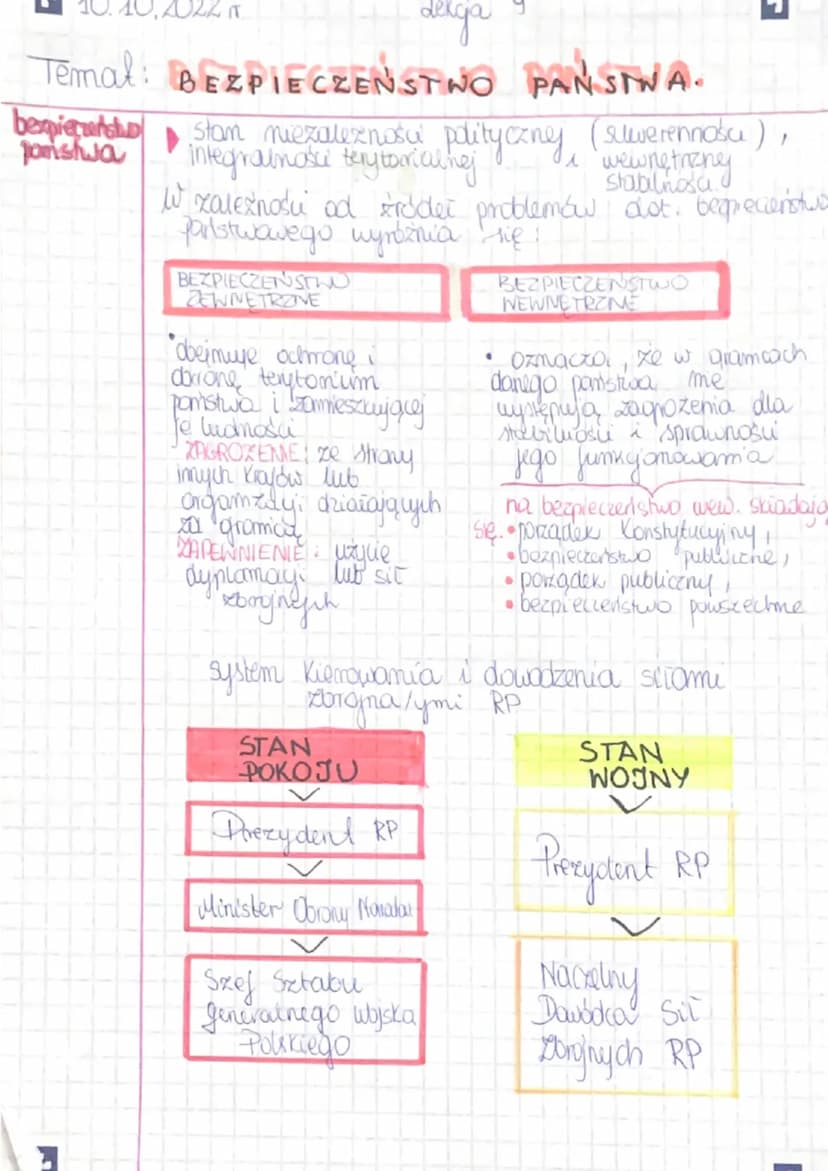 10.10.2022 r
lekcja 9
Temat: BEZPIECZEŃSTWO PAŃSTWA.
bezpieczeństwo
państwa
stan niezależności politycznej (suwerenności),
integralności terytorialnej i wewnętrznej
stabilności
W zależności od źródeł problemów dot. bezpieczeństwa
państwowego wyróżnia się:
BEZPIECZEŃSTWO
ZEWNĘTRZNE
• obejmuje ochronę i
obronę terytorium
państwa i zamieszkującej
je ludności
ZAGROŻENIE: ze strony
innych krajów lub
organizacji działających
za granicą
ZAPEWNIENIE: użycie
dyplomacji lub sił
zbrojnych
BEZPIECZEŃSTWO
WEWNĘTRZNE
• oznacza, że w granicach
danego państwa nie
występują zagrożenia dla
stabilności i sprawności
jego funkcjonowania
na bezpieczeństwo wew. składają
się: • porządek konstytucyjny,
• bezpieczeństwo publiczne,
• porządek publiczny,
• bezpieczeństwo powszechne
System kierowania i dowodzenia siłami
zbrojna/ymi RP
STAN
POKOJU
Prezydent RP
Minister Obrony Narodow
Szef Sztabu
generalnego Wojska
Polskiego
STAN
WOJNY
Prezydent RP
Naczelny
Dowódca Sił
Zbrojnych RP